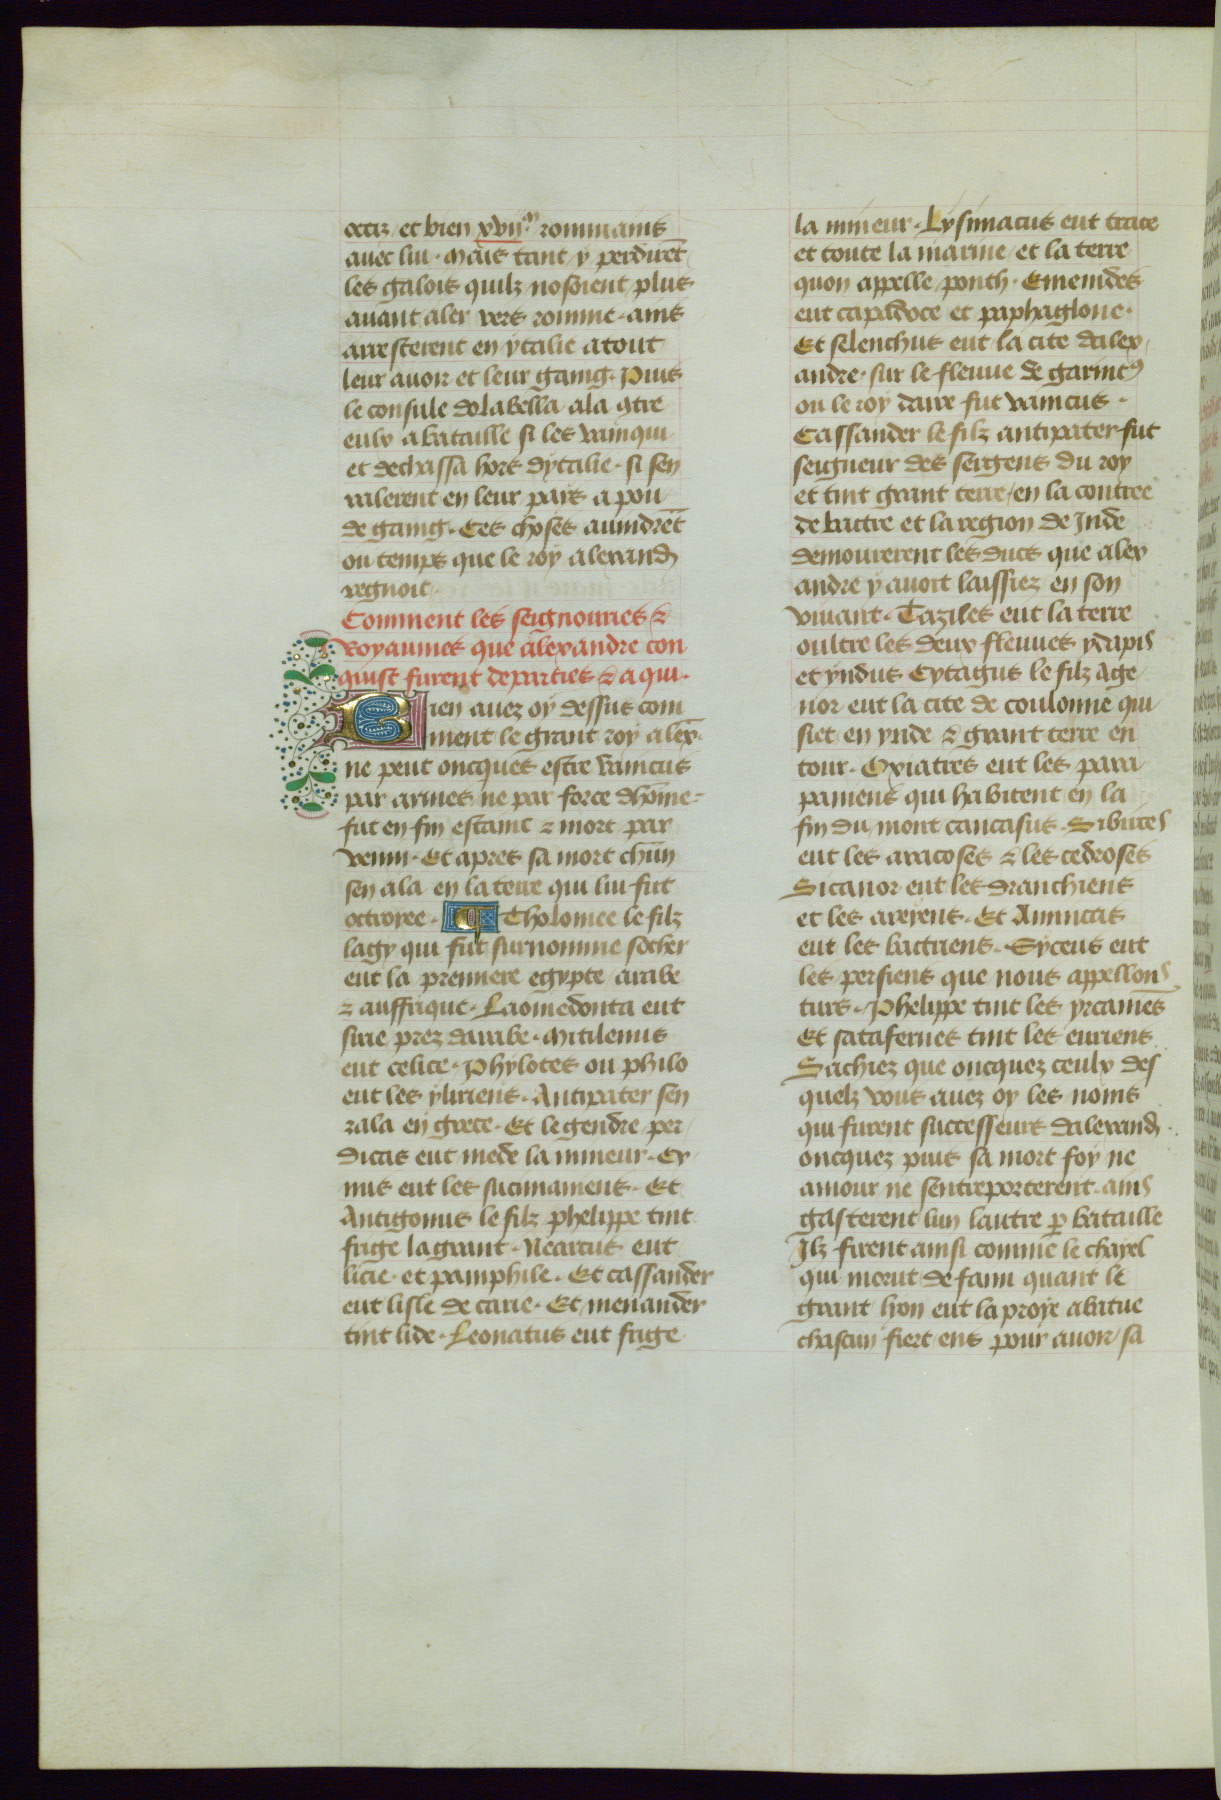 occiz et bien xvij.m rommains
auec lui. Mais tant y perdirēt
les galois quilz nosoient plus
auant aler vers romme. ains
arresterent en ytalie atout
leur auoir et leur gaing. Puis
le consule dolabella ala ꝯtre
eulx a bataille si les vainqui
et dechassa hors dytalie. si sen
ralerent en leur pais a pou
de gaing. Ces choses auindrēt
ou temps que le roy alexand̄
regnoit.
Comment les seignouries ⁊
Royaumes que alexandre con
quist furent departies ⁊ a qui.
Bien auez oy dessus com
ment le grant roy alex̄.
ne peut oncques estre vaincus
par armes ne par force dhōme
fut en fin estaint ⁊ mort par
venin. Et apres sa mort chūn
sen ala en la terre qui lui fut
octroyee. Tholomee le filz
lagy qui fut surnomme socher
eut la premiere egypte arabe
⁊ auffrique. Laomedonta eut
sirie prez darabe. Mitilenus
eut celice. Phylotes ou philo
eut les yliriens. Antipater sen
rala en grece. Et le gendre per
dicas eut mede la mineur. Ey
nus eut les sucinamens. Et
Antigonus le filz phelippe tint
frige la grant. Nearcus eut
licie et pamphile. Et cassander
eut lisle de carie. Et menander
tint lide. Leonatus eut frige
la mineur. Lysimacus eut trace
et toute la marine et la terre
quon appelle ponth. Emenides
eut capadoce et paphaglone.
Et selenchus eut la cite dalex
andre sur le fleuue de garinc9
ou le roy daire fut vaincus.
Cassander le filz antipater fut
seigneur des sergens du roy
et tint grant terre en la contree
de bactre et la region de Inde
demourerent les ducs que alex
andre y auoit laissiez en son
viuant. Taziles eut la terre
oultre les deux fleuues ydapis
et yndus Cytagus le filz age
nor eut la cite de coulonne qui
siet en ynde ⁊ grant terre en
tour. Oxiatres eut les para
pamens qui habitent en la
fin du mont caucasus. Siburtes
eut les aracoses ⁊ les cedroses
Sicanor eut les dranchiens
et les areyens. Et Amintas
eut les bactriens. Syceus eut
les persiens que nous appellons
turs. Phelippe tint les yrcaniēs
Et satafernes tint les euriens
Sachiez que oncquez ceulx des
quelz vous auez oy les noms
qui furent successeurs dalexand̄.
oncquez puis sa mort foy ne
amour ne sentreporterent ains
gasterent lun lautre ꝑ bataille
Ilz firent ainsi comme le chael
qui morut de fain quant le
grant lion eut la proye abatue
chascun fiert ens pour auoir sa